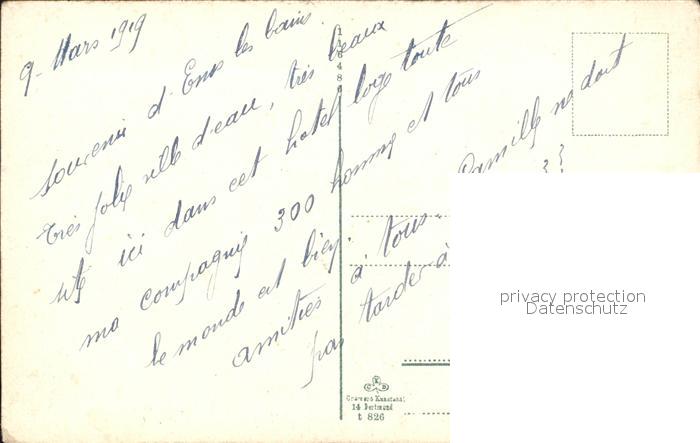 9 - Mars 1919
Souvenir d'Ems les bains.
très jolie ville d'eau, très beaux
site ici dans cet hotel loge toute
ma compagnie 300 homme et tous
le monde est bien.
amitiés à tous Camille ne doit
pas tarder à
??
116480
Cramers Kunstanst
14 Dortmund
t 826
privacy protection
Datenschutz